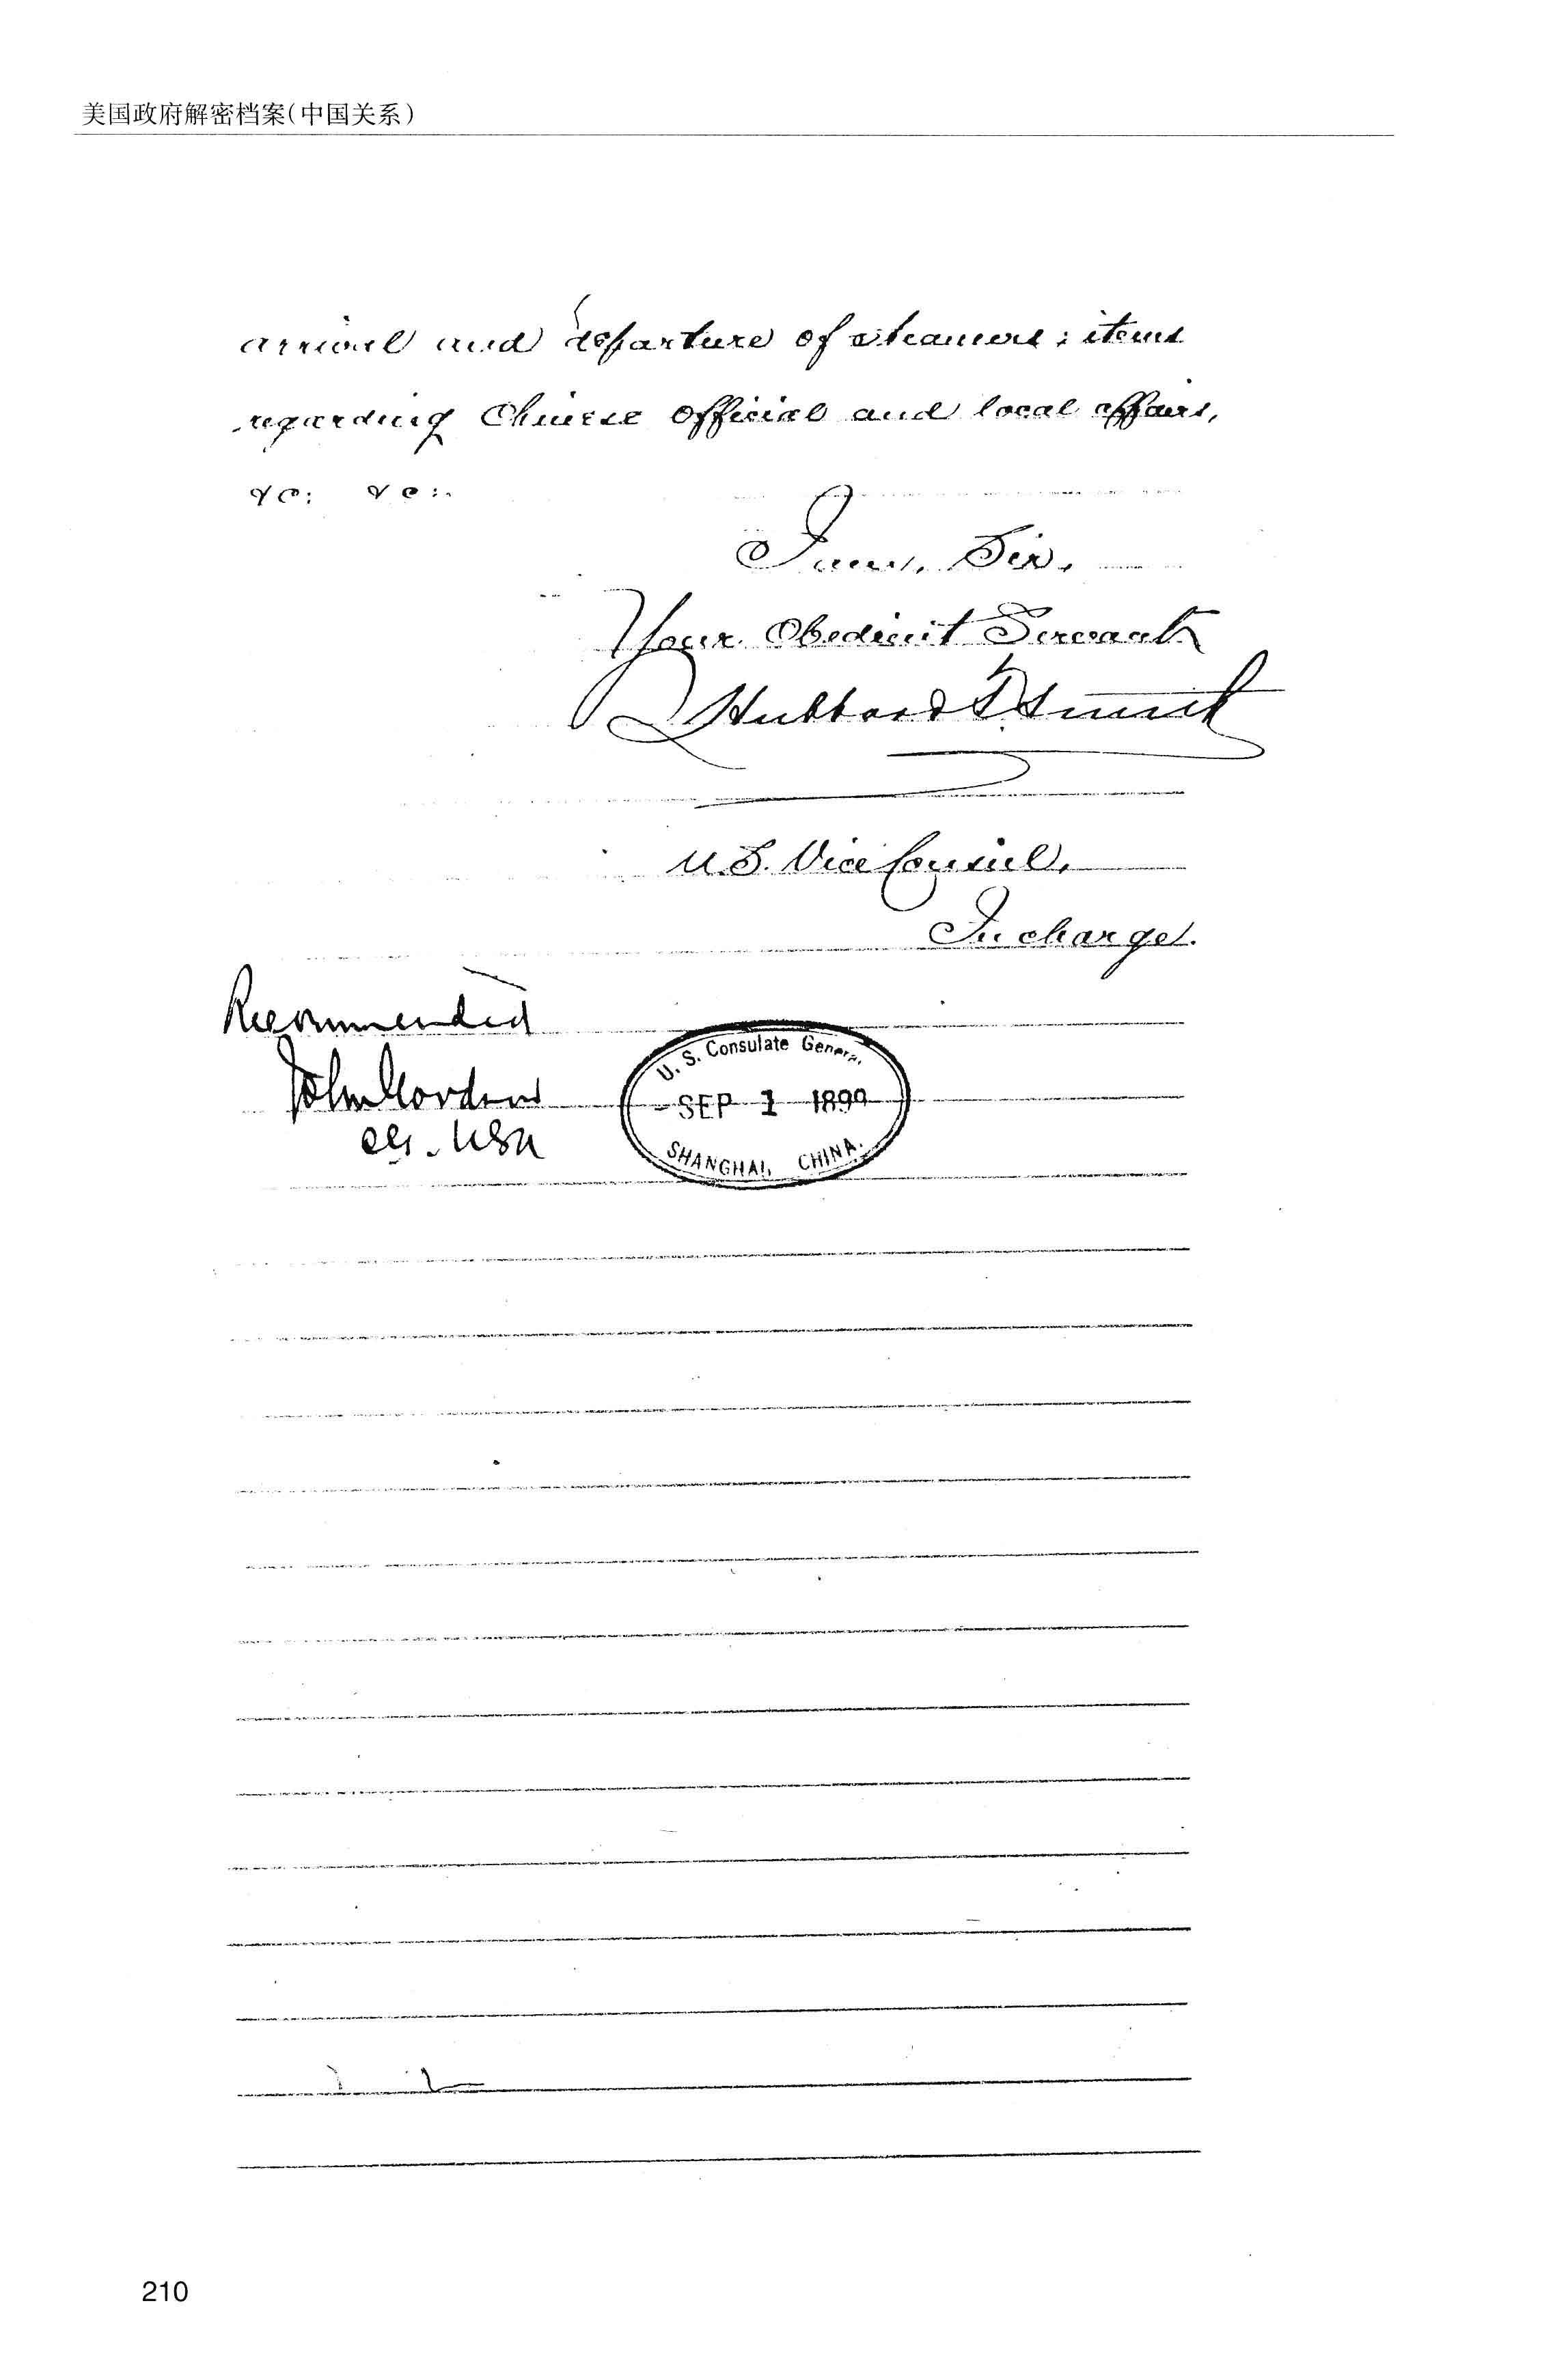 美国政府解密档案(中国关系)
arrival and departure of steamers; items
regarding Chinese official and local affairs,
&c: &c:.
I am, Sir,
Your Obedient Servant
Hubbard T. Smith
U.S. Vice Consul,
In charge.
Recommended
John Goodnow
CG. USA
U. S. Consulate General
SEP 1 1899
SHANGHAI, CHINA.
210